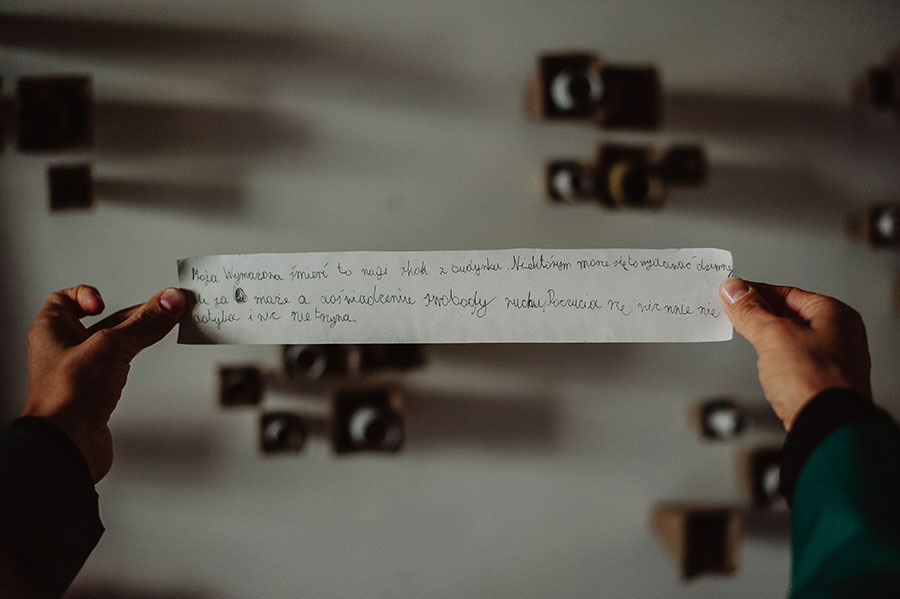 Moja Wymarzona śmierć to nagi skok z budynku. Niektórym może się to wydawać dziwne
ale ja marze a doświadczeniu swobody ruchu, Poczucia że nic mnie nie
dotyka i nic nie trzyma.